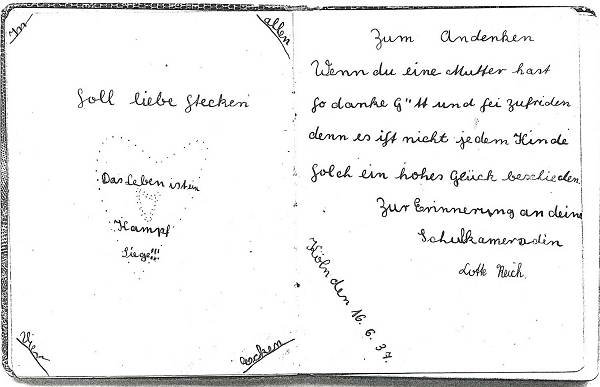 In
allen
vier
ecken
Soll liebe stecken
Das Leben ist ein
Kampf
Siege!!!
Zum Andenken
Wenn du eine Mutter hast
so danke G"tt und sei zufriden
denn es ist nicht jedem Kinde
solch ein hohes Glück beschieden
Zur Erinnerung an deine
Schulkameradin
Lotte Reich.
Köln den 16. 6. 37.